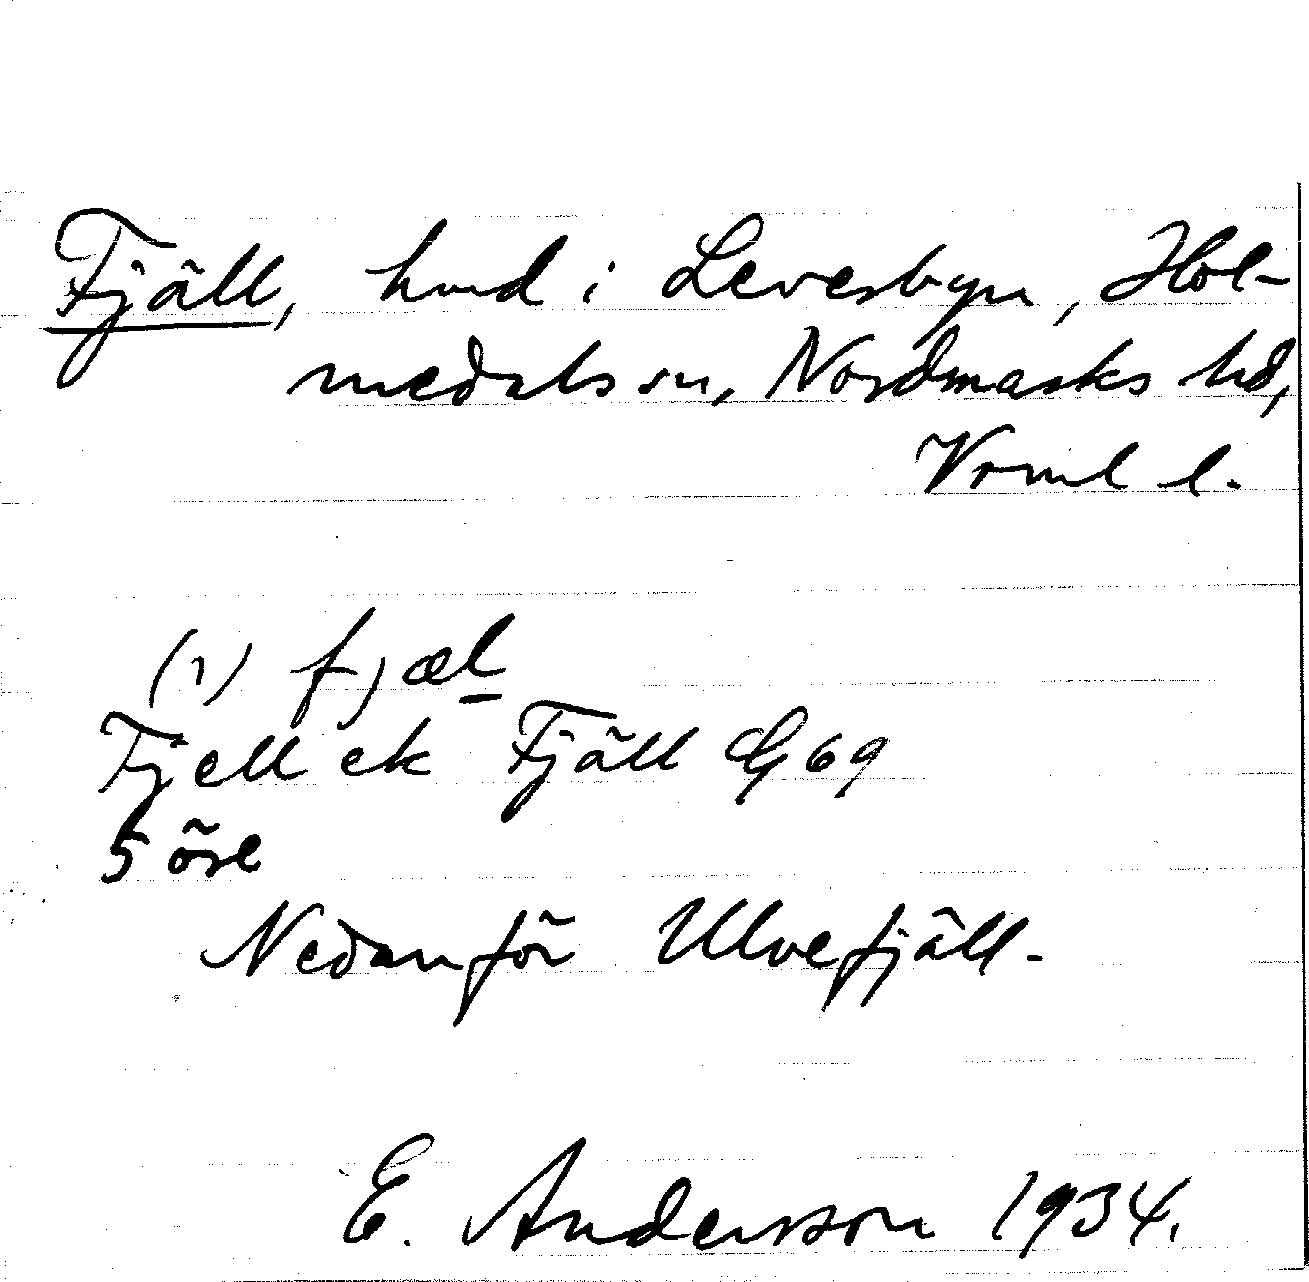 Fjäll, hmd i Leverbyn, Hol-
medals sn, Nordmarks hd,
Vrml l.
(1) fjæl
Fjell ek Fjäll G 69
5 öre
Nedanför Ulvefjäll.
E. Andersson 1934.